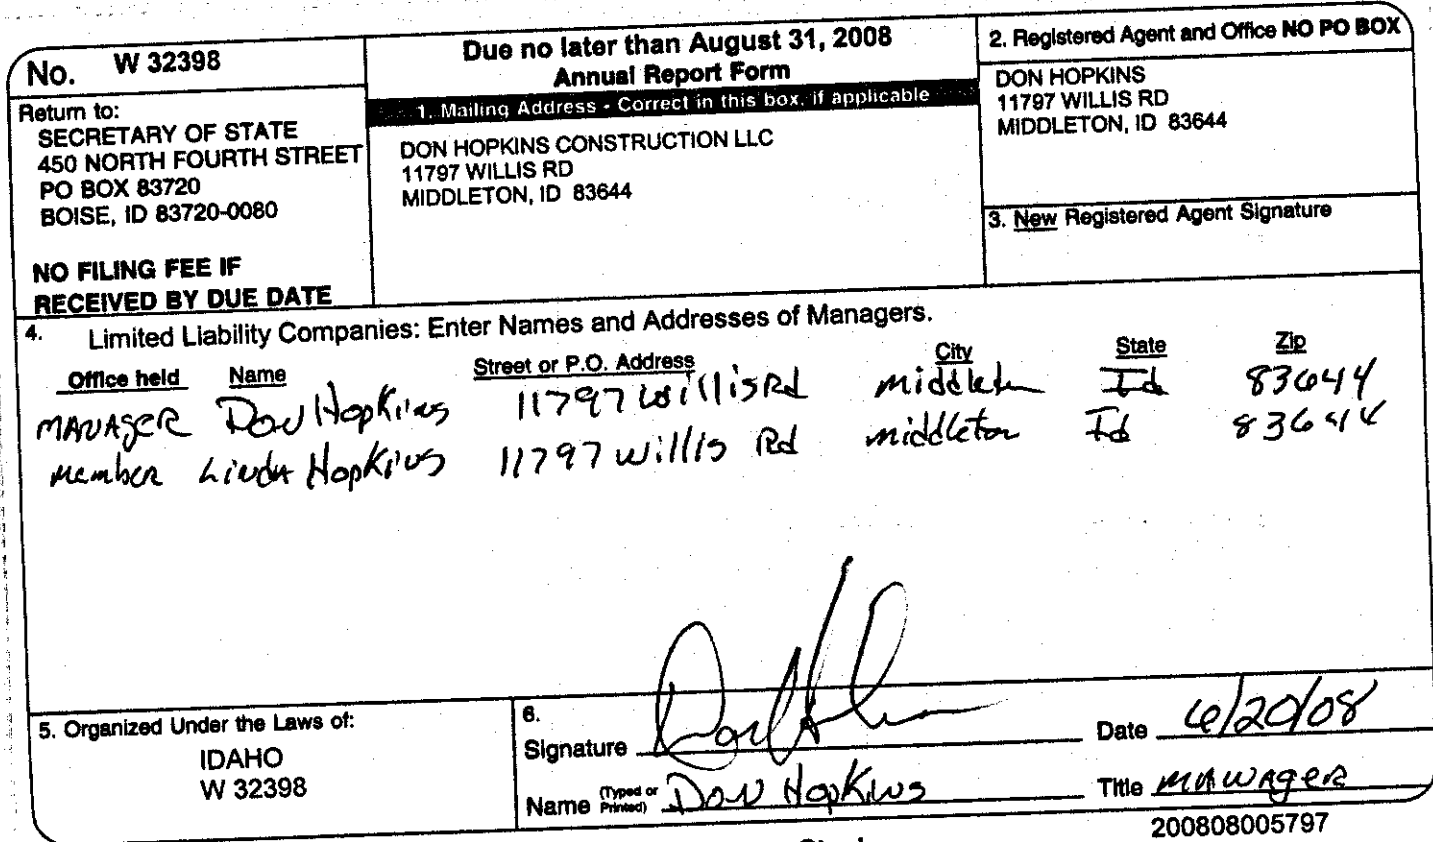 No. W 32398
Return to:
SECRETARY OF STATE
450 NORTH FOURTH STREET
PO BOX 83720
BOISE, ID 83720-0080
NO FILING FEE IF
RECEIVED BY DUE DATE
Due no later than August 31, 2008
Annual Report Form
1. Mailing Address - Correct in this box, if applicable
DON HOPKINS CONSTRUCTION LLC
11797 WILLIS RD
MIDDLETON, ID 83644
2. Registered Agent and Office NO PO BOX
DON HOPKINS
11797 WILLIS RD
MIDDLETON, ID 83644
3. New Registered Agent Signature
4. Limited Liability Companies: Enter Names and Addresses of Managers.
Office held Name Street or P.O. Address City State Zip
MANAGER Don Hopkins 11797 Willis Rd middleton Id 83644
member Linda Hopkins 11797 Willis Rd middleton Id 83644
5. Organized Under the Laws of:
IDAHO
W 32398
6.
Signature Date 6/20/08
Name (Typed or Printed) Don Hopkins Title manager
200808005797